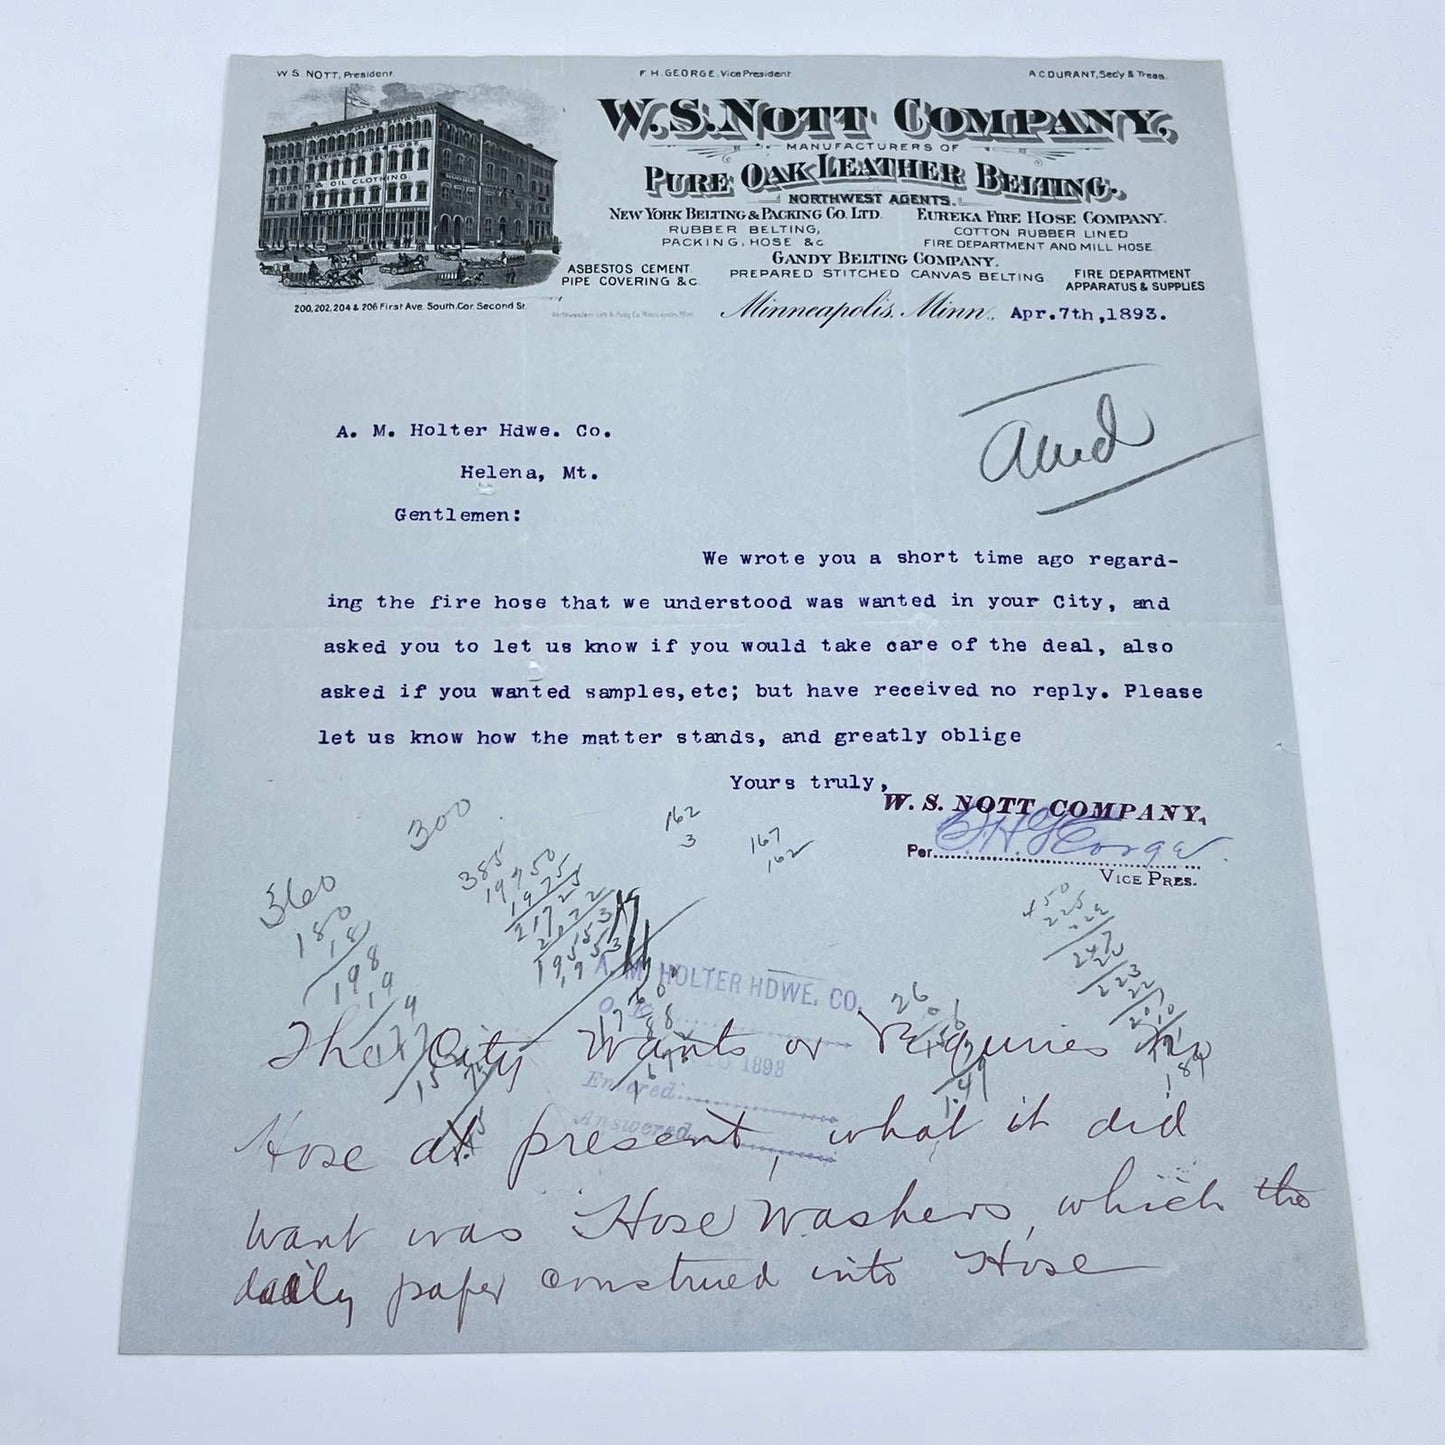 W. S. NOTT, President
F. H. GEORGE, Vice President
A. C. DURANT, Sec'y & Treas.
W. S. NOTT COMPANY,
MANUFACTURERS OF
PURE OAK LEATHER BELTING.
NORTHWEST AGENTS.
NEW YORK BELTING & PACKING CO. LTD.
RUBBER BELTING,
PACKING, HOSE &c
EUREKA FIRE HOSE COMPANY.
COTTON RUBBER LINED
FIRE DEPARTMENT AND MILL HOSE
GANDY BELTING COMPANY.
PREPARED STITCHED CANVAS BELTING
ASBESTOS CEMENT
PIPE COVERING &c.
FIRE DEPARTMENT
APPARATUS & SUPPLIES
& OIL CLOTHING
200, 202, 204 & 206 First Ave. South, Cor. Second St.
Minneapolis, Minn., Apr. 7th, 1893.
A. M. Holter Hdwe. Co.
Helena, Mt.
Gentlemen:
We wrote you a short time ago regard-
ing the fire hose that we understood was wanted in your City, and
asked you to let us know if you would take care of the deal, also
asked if you wanted samples, etc; but have received no reply. Please
let us know how the matter stands, and greatly oblige
Yours truly,
W. S. NOTT COMPANY,
Per F. H. George
VICE PRES.
300
162
3
167
162
360
180
18
198
19
385
19750
1975
21725
450
225
247
223
A. M. HOLTER HDWE. CO.
1893
Entered
Answered
The City Wants or Requires no
Hose at present, what it did
want was Hose Washers, which the
daily paper construed into Hose